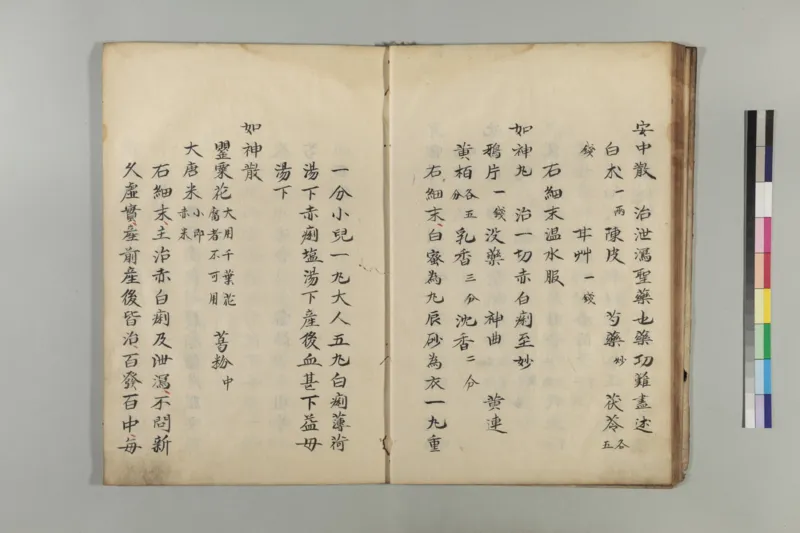 安中散　治泄瀉聖藥也藥功難盡述
白朮一両　陳皮　芍藥炒　茯苓各五
錢　甘艸一錢
右細末温水服
如神丸　治一切赤白痢至妙
鴉片一錢　没藥　神曲　黄連
黄栢各五分　乳香三分　沈香二分
右細末白蜜為丸辰砂為衣一丸重
一分小兒一丸大人五丸白痢薄荷
湯下赤痢塩湯下産後血甚下益母
湯下
如神散
罌粟花大用千葉花腐者不可用　葛粉中
大唐米小即赤米
右細末主治赤白痢及泄瀉不問新
久虚實産前産後皆治百發百中毎